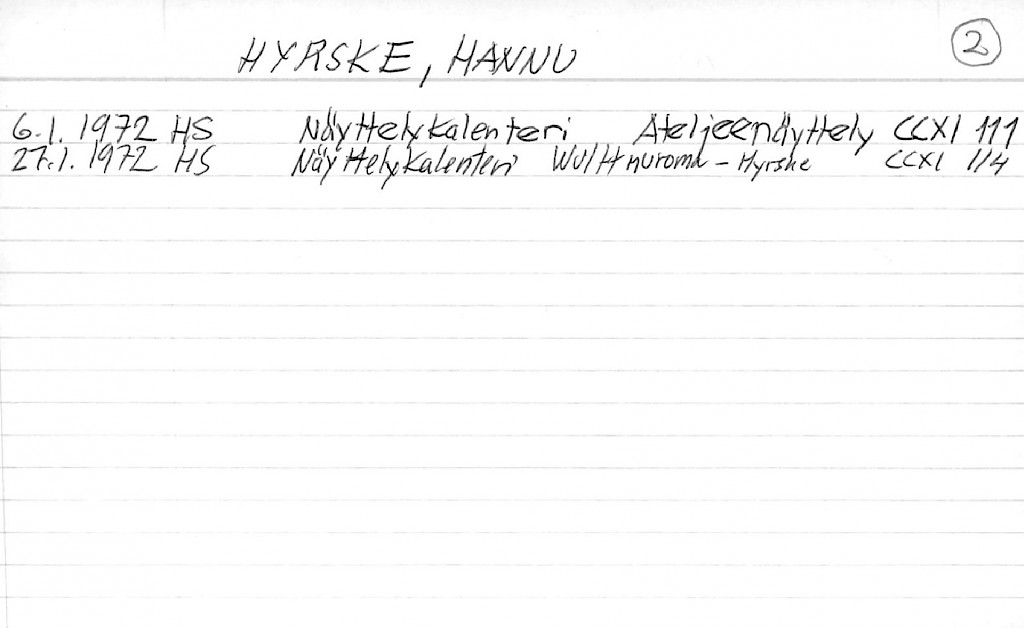 HYRSKE, HANNU
2
6.1. 1972 HS Näyttelykalenteri Ateljeenäyttely CCXI 111
27.1. 1972 HS Näyttelykalenteri - Hyrske CCXI 114